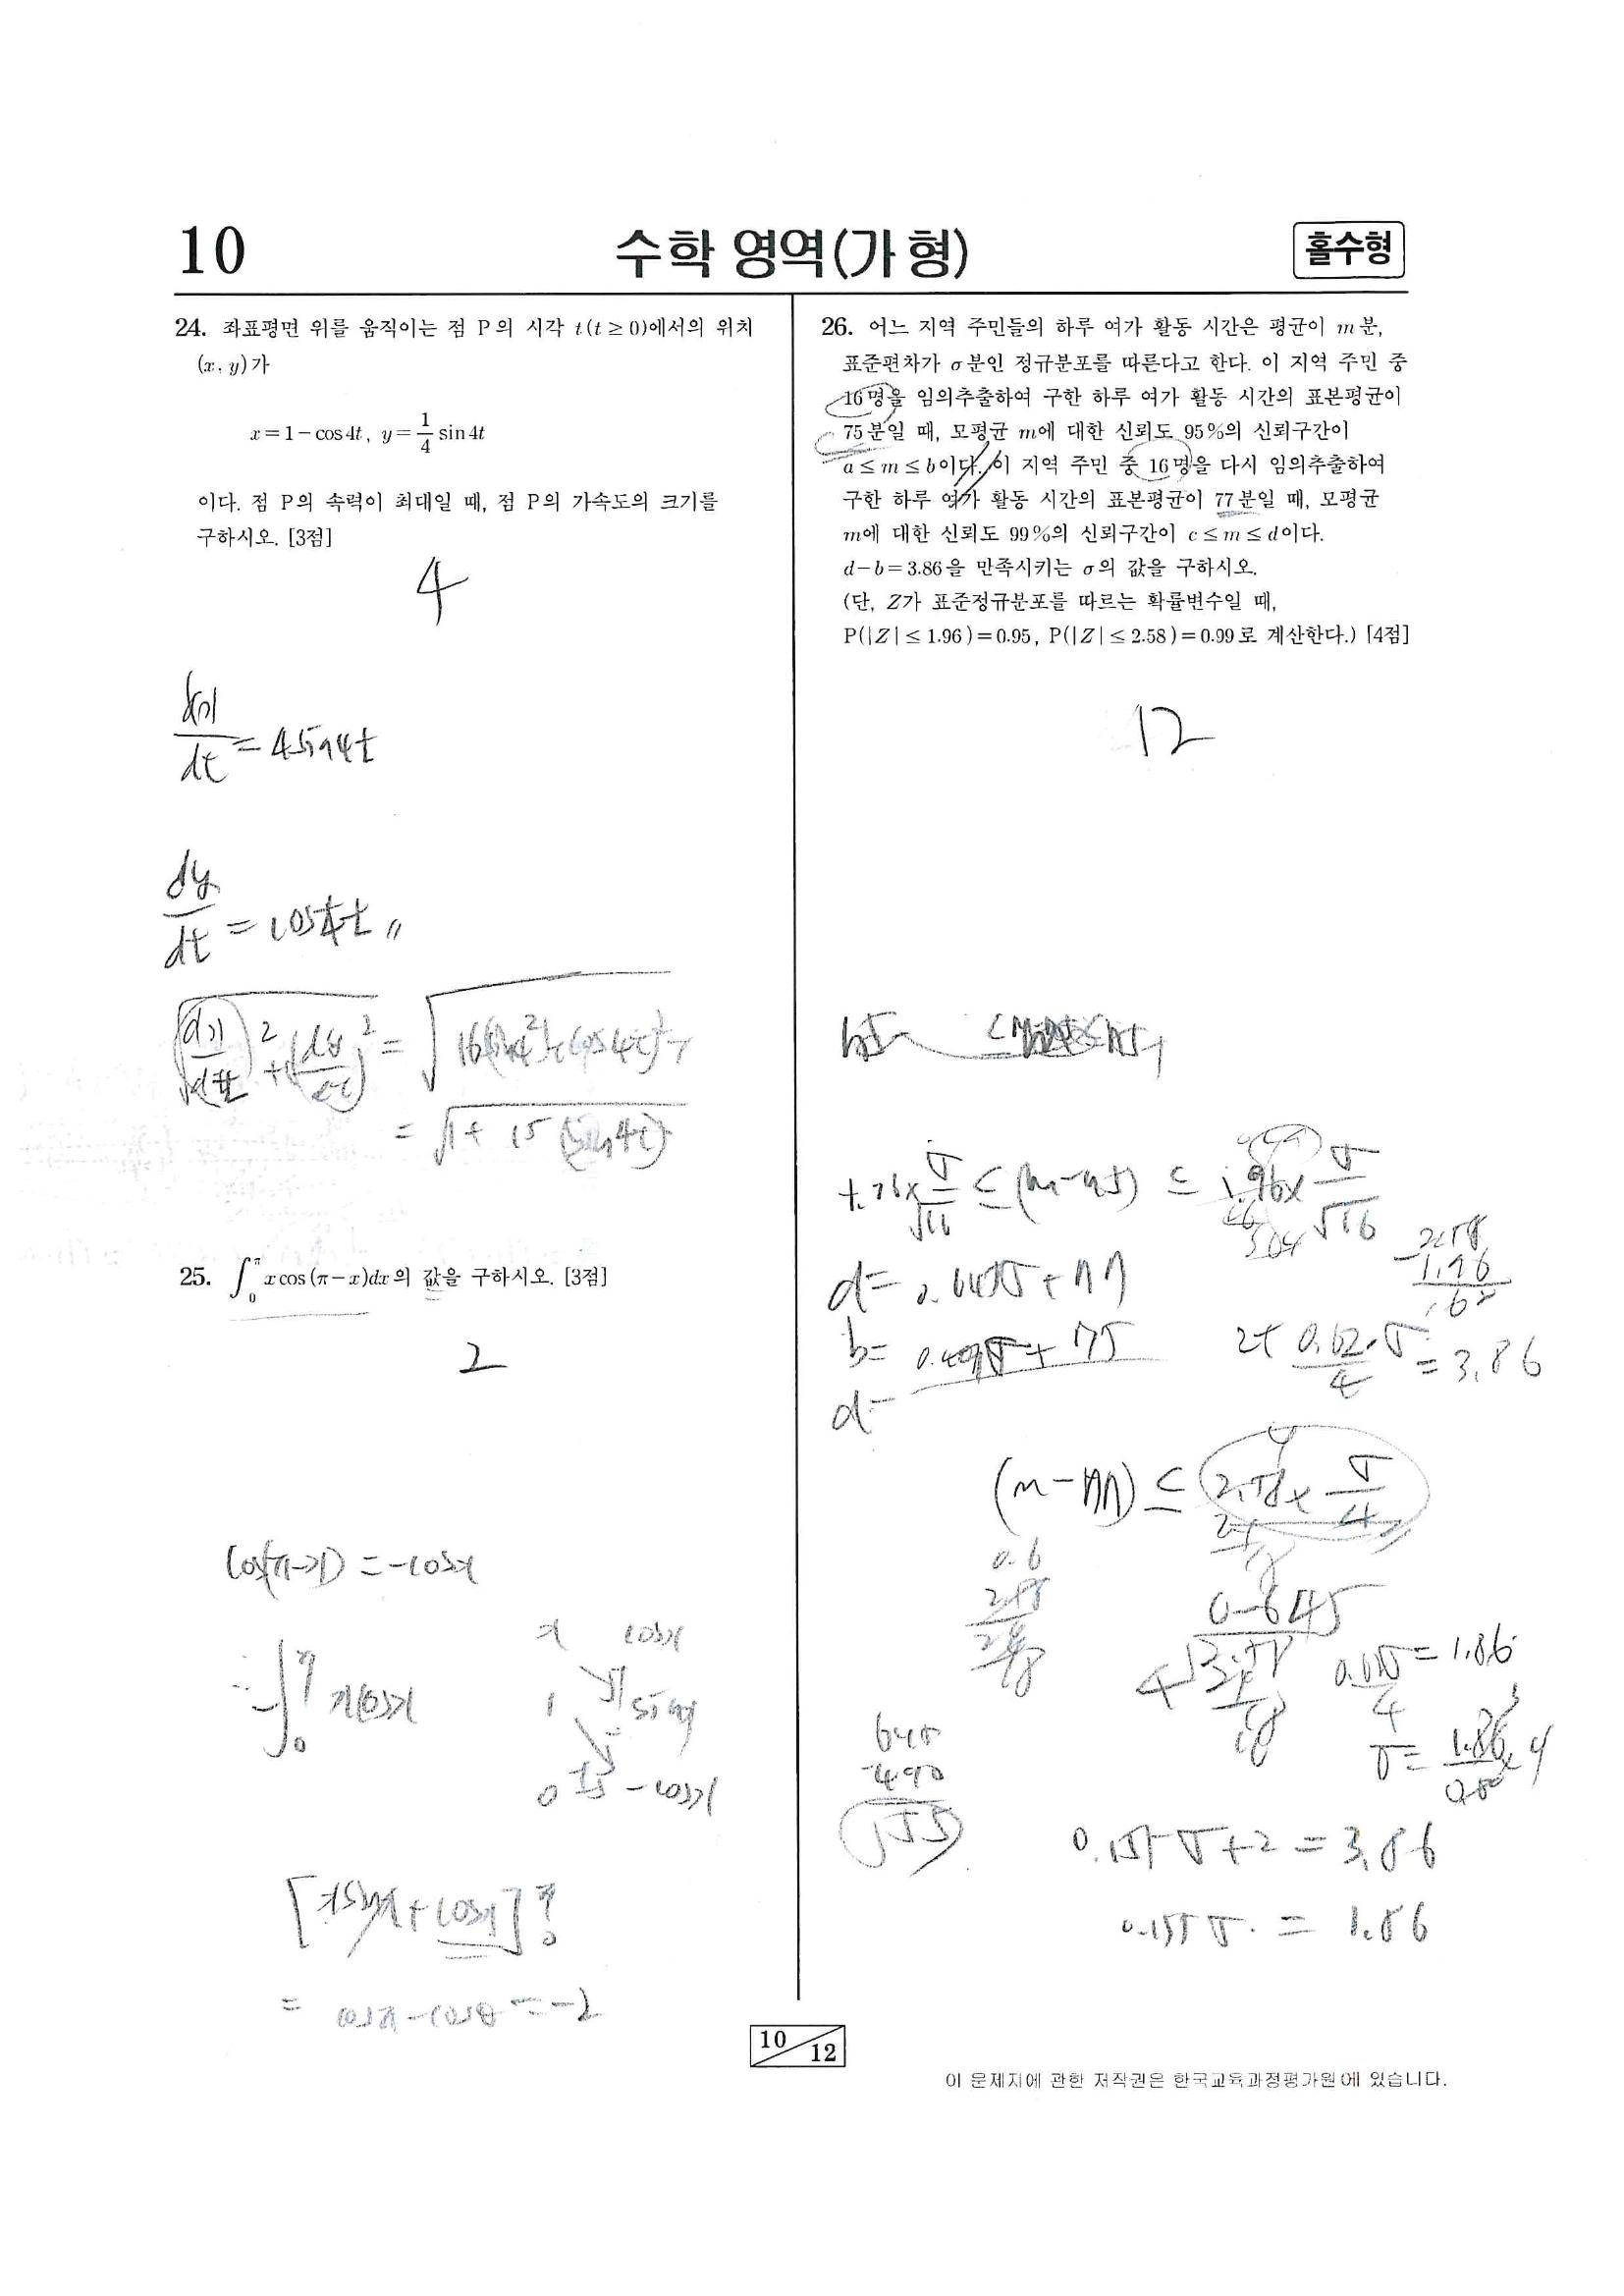 10
수학 영역(가 형)
홀수형
24. 좌표평면 위를 움직이는 점 P의 시각 t(t ≥ 0)에서의 위치
(x, y)가
x = 1 − cos 4t, y = 1/4 sin 4t
이다. 점 P의 속력이 최대일 때, 점 P의 가속도의 크기를
구하시오. [3점]
4
dx/dt = 4sin4t
dy/dt = cos4t
= √1 + 15 (sin4t)
25. ∫₀^π x cos (π − x)dx의 값을 구하시오. [3점]
2
cos(π−x) = −cosx
−∫₀^π xcosx
x cosx
1 sinx
0 −cosx
[xsinx + cosx]₀^π
= cosπ − cos0 = −2
26. 어느 지역 주민들의 하루 여가 활동 시간은 평균이 m분,
표준편차가 σ분인 정규분포를 따른다고 한다. 이 지역 주민 중
16명을 임의추출하여 구한 하루 여가 활동 시간의 표본평균이
75분일 때, 모평균 m에 대한 신뢰도 95%의 신뢰구간이
a ≤ m ≤ b이다. 이 지역 주민 중 16명을 다시 임의추출하여
구한 하루 여가 활동 시간의 표본평균이 77분일 때, 모평균
m에 대한 신뢰도 99%의 신뢰구간이 c ≤ m ≤ d이다.
d − b = 3.86을 만족시키는 σ의 값을 구하시오.
(단, Z가 표준정규분포를 따르는 확률변수일 때,
P(|Z| ≤ 1.96) = 0.95, P(|Z| ≤ 2.58) = 0.99로 계산한다.) [4점]
12
≤ (m−75) ≤ 1.96× σ/√16
d = 0.645σ + 77
b = 0.49σ + 75
2.58
1.96
.62
2+ 0.62·σ/4 = 3.86
d−
(m−77) ≤ 2.58× σ/4
0.645
645
490
155
0.155σ+2 = 3.86
0.155σ = 1.86
10
12
이 문제지에 관한 저작권은 한국교육과정평가원에 있습니다.